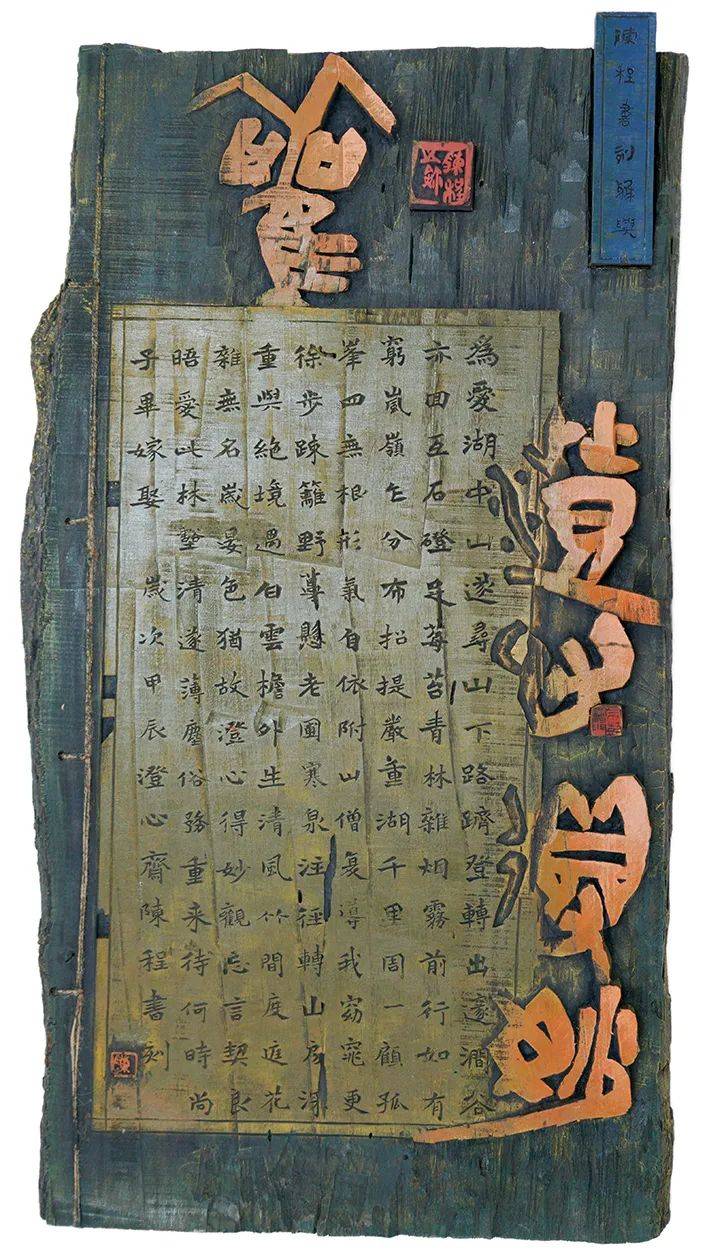 陳程書刻
澄心得妙
觀
陳程之鉥
為愛湖中山遂尋山下路躋登轉出邃澗谷
亦回互石磴足莓苔青林雜烟霧前行如有
窮嵐嶺乍分布招提嚴重湖千里周一顧孤
峯四無根形氣自依附山僧夐導我窈窕更
徐步踈籬野蕚懸老圃寒泉注徑轉山房深
重與絕境遇白雲檐外生清風竹間度庭花
雜無名歲晏色猶故澄心得妙觀忘言契良
晤愛此林壑清遂薄塵俗務重来待何時尚
子畢嫁娶 歲次甲辰澄心齋陳程書刻
陳